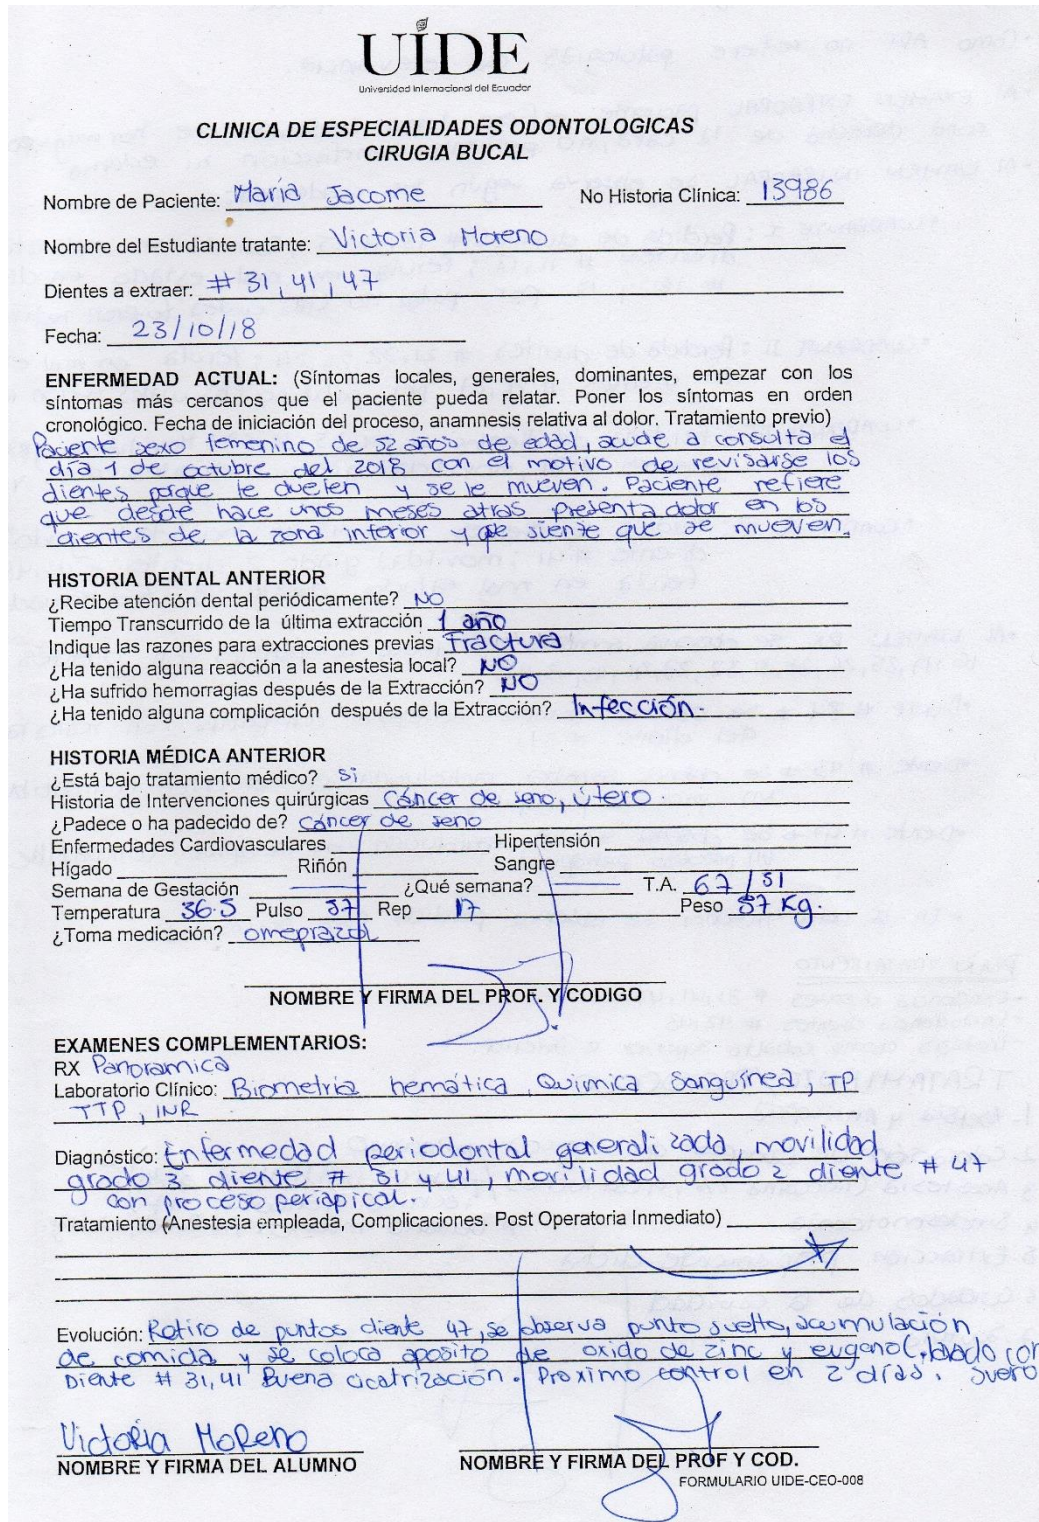 UIDE
Universidad Internacional del Ecuador
CLINICA DE ESPECIALIDADES ODONTOLOGICAS
CIRUGIA BUCAL
Nombre de Paciente: María Jacome No Historia Clínica: 13986
Nombre del Estudiante tratante: Victoria Moreno
Dientes a extraer: # 31, 41, 47
Fecha: 23/10/18
ENFERMEDAD ACTUAL: (Síntomas locales, generales, dominantes, empezar con los
síntomas más cercanos que el paciente pueda relatar. Poner los síntomas en orden
cronológico. Fecha de iniciación del proceso, anamnesis relativa al dolor. Tratamiento previo)
Paciente sexo femenino de 52 años de edad, acude a consulta el
día 1 de octubre del 2018 con el motivo de revisarse los
dientes porque le duelen y se le mueven. Paciente refiere
que desde hace unos meses atras presenta dolor en los
dientes de la zona inferior y siente que se mueven.
HISTORIA DENTAL ANTERIOR
¿Recibe atención dental periódicamente? NO
Tiempo Transcurrido de la última extracción 1 año
Indique las razones para extracciones previas Fractura
¿Ha tenido alguna reacción a la anestesia local? NO
¿Ha sufrido hemorragias después de la Extracción? NO
¿Ha tenido alguna complicación después de la Extracción? Infección.
HISTORIA MÉDICA ANTERIOR
¿Está bajo tratamiento médico? Si
Historia de Intervenciones quirúrgicas Cáncer de seno, útero.
¿Padece o ha padecido de? Cáncer de seno
Enfermedades Cardiovasculares Hipertensión
Hígado Riñón Sangre
Semana de Gestación ¿Qué semana? T.A. 67 / 51
Temperatura 36.5 Pulso 57 Rep 17 Peso 57 Kg.
¿Toma medicación? omeprazol
NOMBRE Y FIRMA DEL PROF. Y CODIGO
EXAMENES COMPLEMENTARIOS:
RX Panoramica
Laboratorio Clínico: Biometria hemática, Quimica Sanguínea, TP
TTP, INR
Diagnóstico: Enfermedad periodontal generalizada, movilidad
grado 3 diente # 31 y 41, movilidad grado 2 diente # 47
con proceso periapical.
Tratamiento (Anestesia empleada, Complicaciones. Post Operatoria Inmediato)
Evolución: Retiro de puntos diente 47, se observa punto suelto, acumulación
de comida y se coloca aposito de oxido de zinc y eugenol, lavado con
Diente # 31, 41 Buena cicatrización. Proximo control en 2 días. suero
Victoria Moreno
NOMBRE Y FIRMA DEL ALUMNO NOMBRE Y FIRMA DEL PROF Y COD.
FORMULARIO UIDE-CEO-008